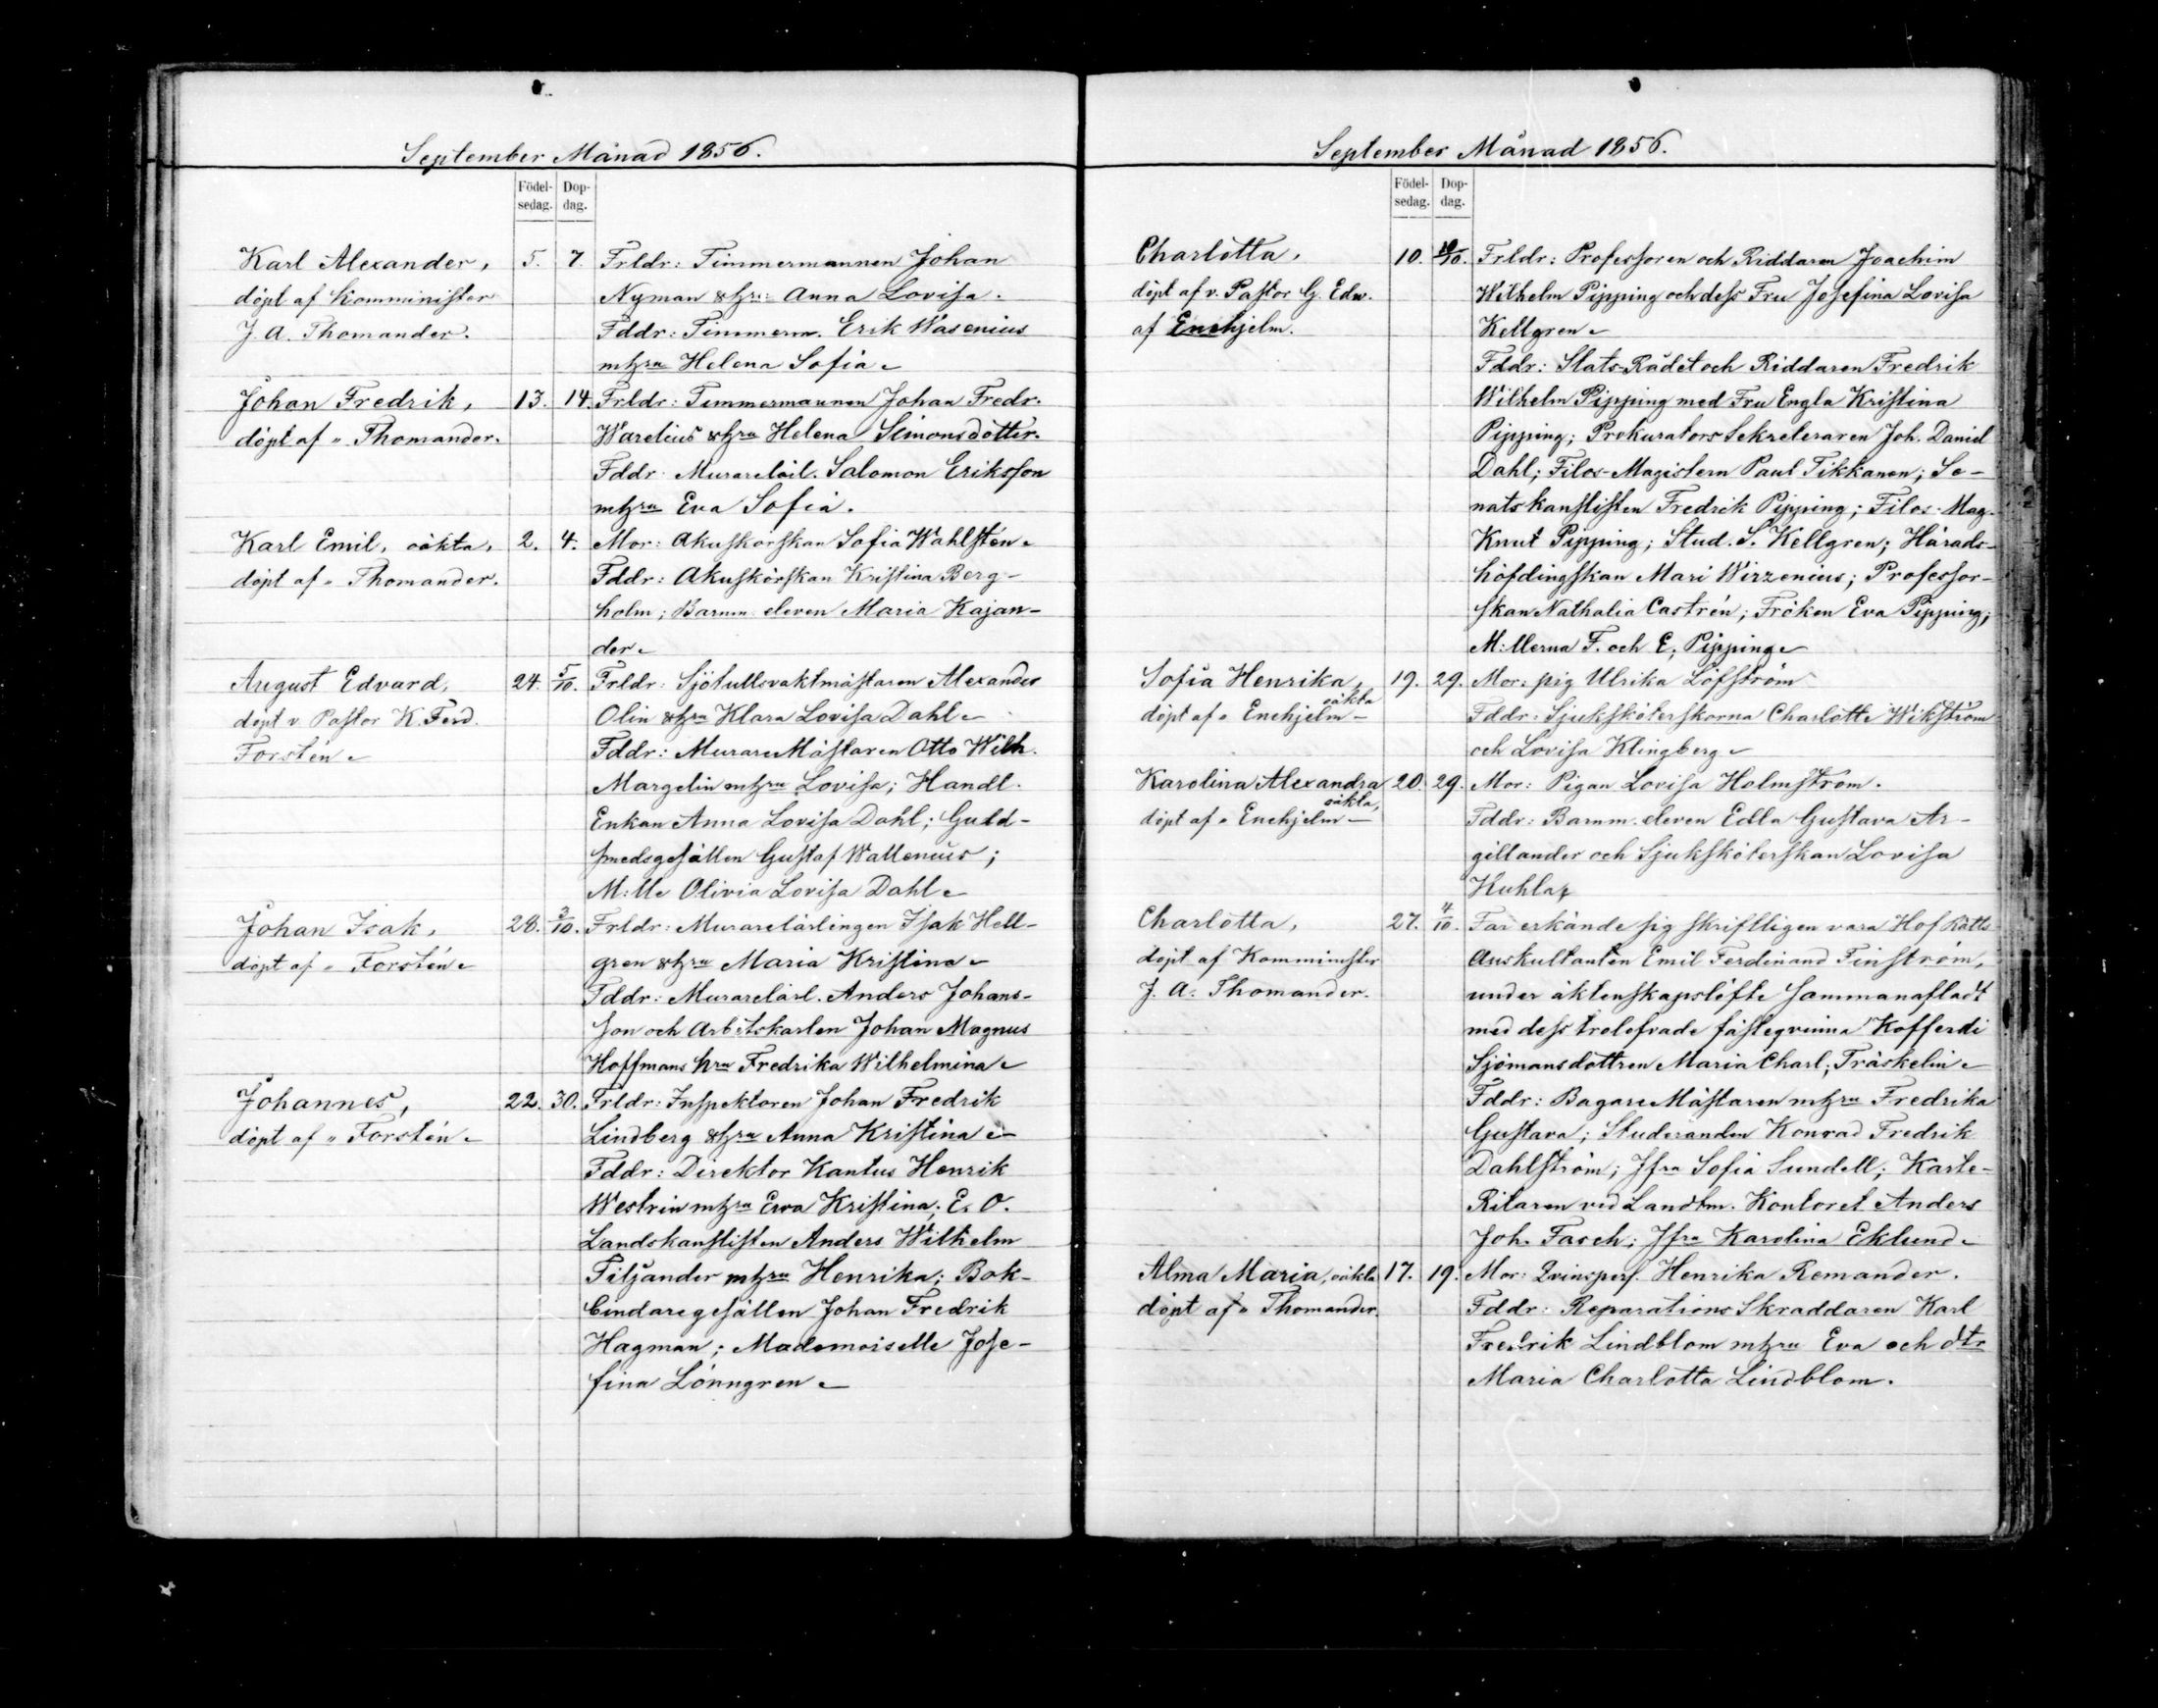 September Månad 1856.
Födel- Dop-
sedag. dag.
Karl Alexander, 5. 7. Frldr: Timmermannen Johan
döpt af Komminister Nyman & hu: Anna Lovisa.
J. A. Thomander. Fddr: Timmerm. Erik Wasenius
m hu Helena Sofia
Johan Fredrik, 13. 14. Frldr: Timmermannen Johan Fredr.
döpt af " Thomander. Warelius & hu Helena Simonsdotter.
Fddr. Murarelärl. Salomon Eriksson
m hu Eva Sofia.
Karl Emil, oäkta, 2. 4. Mor: Akuskörskan Sofia Wahlstén
döpt af " Thomander. Fddr: Akuskörskan Kristina Berg-
holm; Barnm. eleven Maria Kajan-
der
August Edvard, 24. 5/10. Frldr: Sjötullsvaktmästaren Alexander
döpt v Pastor K. Ferd. Olin & hu Klara Lovisa Dahl
Forstén Fddr: MurareMästaren Otto Wilh.
Margelin m hu Lovisa; Handl.
Enkan Anna Lovisa Dahl; Guld-
smedsgesällen Gustaf Wallenius;
M:lle Olivia Lovisa Dahl
Johan Isak, 28. 3/10. Frldr: Murarelärlingen Isak Hell-
döpt af " Forstén gren & hu Maria Kristina
Fddr: Murarelärl. Anders Johans-
son och Arbetskarlen Johan Magnus
Hoffmans hu Fredrika Wilhelmina
Johannes, 22. 30. Frldr: Inspektoren Johan Fredrik
döpt af " Forstén Lindberg & hu Anna Kristina
Fddr: Direktor Kantus Henrik
Westrin m hu Ewa Kristina; E. O.
Landskanslisten Anders Wilhelm
Filjander m hu Henrika; Bok-
bindaregesällen Johan Fredrik
Hagman; Mademoiselle Jose-
fina Lönngren
September Månad 1856.
Födel- Dop-
sedag. dag.
Charlotta, 10. 19/10. Frldr: Professoren och Riddaren Joachim
döpt af v. Pastor G. Edw. Wilhelm Pipping och dess Fru Josefina Lovisa
af Enehjelm. Kellgren
Fddr: Stats-Rådet och Riddaren Fredrik
Wilhelm Pipping med Fru Engla Kristina
Pipping; Prokurators Sekreteraren Joh. Daniel
Dahl; Filos-Magistern Paul Tikkanen; Se-
natskanslisten Fredrik Pipping; Filos. Mag.
Knut Pipping; Stud. S. Kellgren; Härads-
höfdingskan Mari Wirzenius; Professor-
skan Nathalia Castrén; Fröken Eva Pipping;
M:llerna F. och E. Pipping
Sofia Henrika, oäkta 19. 29. Mor: pig Ulrika Löfström
döpt af " Enehjelm – Fddr: Sjuksköterskorna Charlotte Wikström
och Lovisa Klingberg
Karolina Alexandra oäkta, 20. 29. Mor: Pigan Lovisa Holmström.
döpt af " Enehjelm – Fddr: Barnm. eleven Edla Gustava Ar-
gillander och Sjuksköterskan Lovisa
Kuhla
Charlotta, 27. 4/10. Far erkände sig skriftligen vara HofRätts
döpt af Komminister Auskultanten Emil Ferdinand Finström,
J. A. Thomander. under äktenskapslöfte sammanafladt
med dess trolofvade fästeqvinna Kofferdi
Sjömansdottren Maria Charl. Träskelin
Fddr: BagareMästaren m hu Fredrika
Gustava; Studeranden Konrad Fredrik
Dahlström; Jfru Sofia Sundell; Karte-
Ritaren vid Landtm. Kontoret Anders
Joh. Fasch; Jfru Karolina Eklund
Alma Maria, oäkta 17. 19. Mor: Qvinspers. Henrika Remander.
döpt af " Thomander. Fddr: Reparations Skraddaren Karl
Fredrik Lindblom m hu Eva och dtr
Maria Charlotta Lindblom.